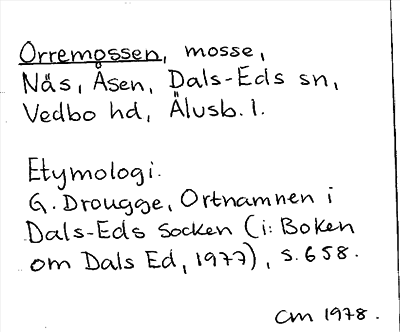 Orremossen, mosse,
Näs, Åsen, Dals-Eds sn,
Vedbo hd, Älvsb. l.
Etymologi.
G. Drougge, Ortnamnen i
Dals-Eds socken (i: Boken
om Dals Ed, 1977), s. 658.
CM 1978.